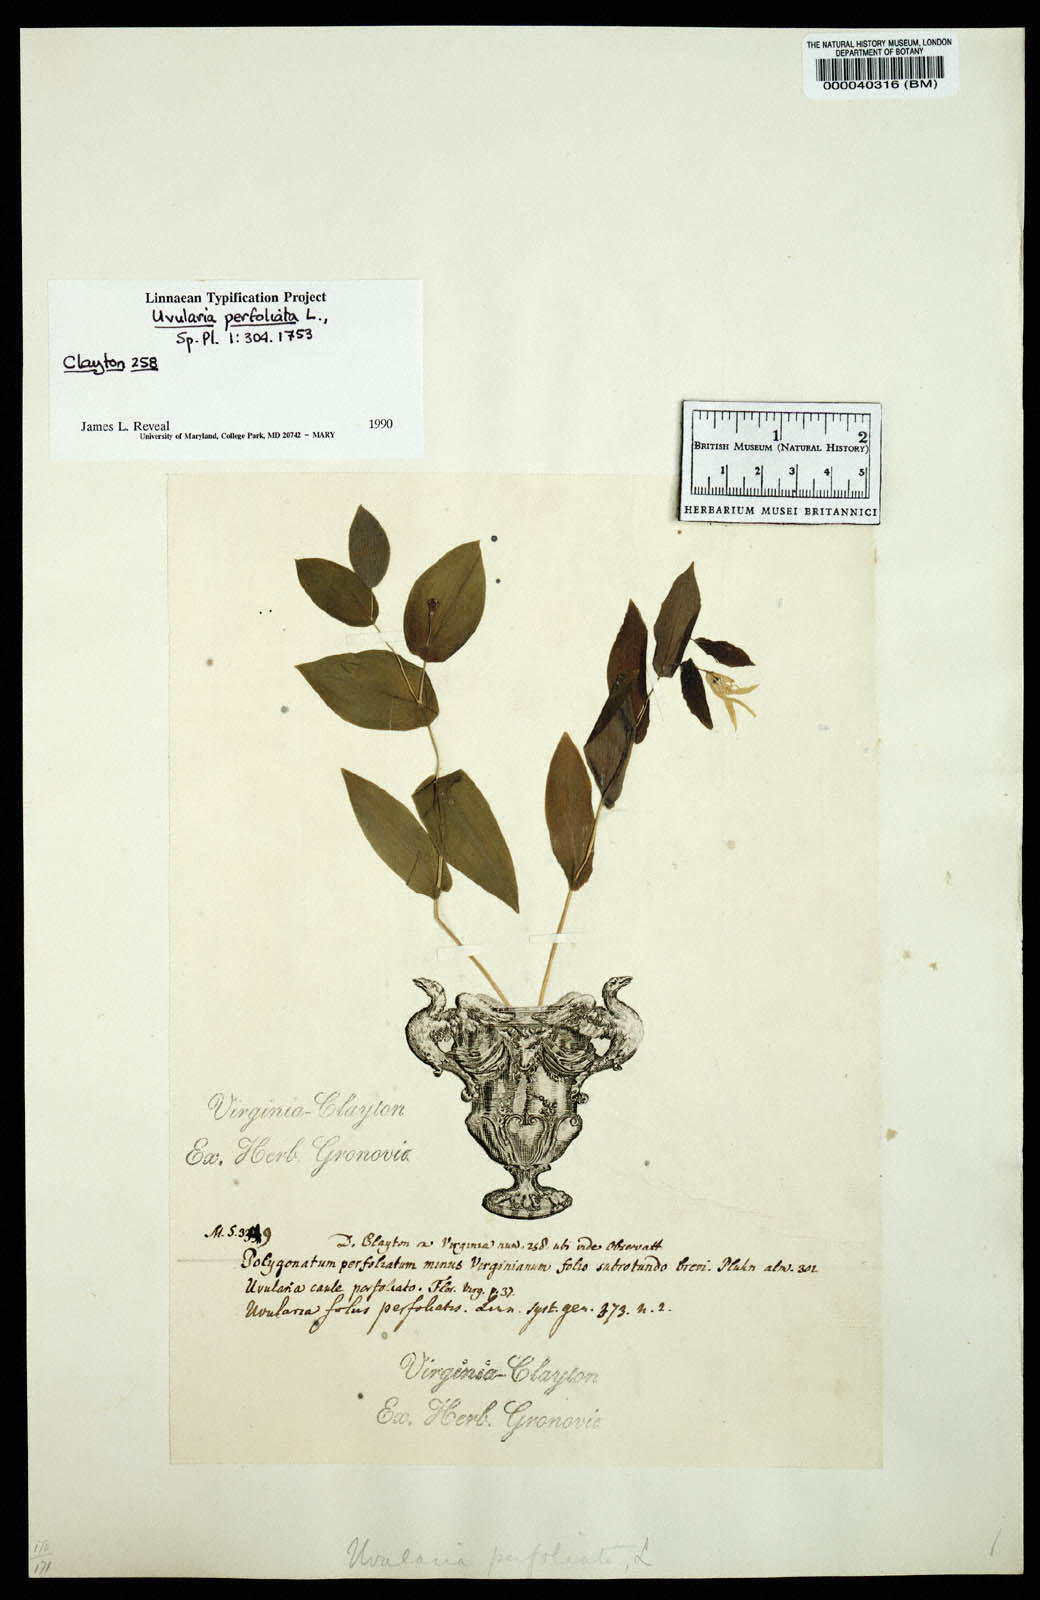 THE NATURAL HISTORY MUSEUM, LONDON
DEPARTMENT OF BOTANY
000040316 (BM)
Linnaean Typification Project
Uvularia perfoliata L.,
Sp. Pl. 1: 304. 1753
Clayton 258
James L. Reveal 1990
University of Maryland, College Park, MD 20742 – MARY
1 2
BRITISH MUSEUM (NATURAL HISTORY)
1 2 3 4 5
HERBARIUM MUSEI BRITANNICI
Virginia-Clayton
Ex. Herb. Gronovic
D. Clayton ex Virginia num. 258. ubi vide Observatt
Polygonatum perfoliatum minus Virginianum folio subrotundo brevi. Plukn alm. 301
Uvularia caule perfoliato. Flor. Virg. p. 37.
Uvularia foliis perfoliatis. Linn. syst. gen. 373. n. 2.
Virginia-Clayton
Ex. Herb. Gronovic
Uvularia perfoliata, L